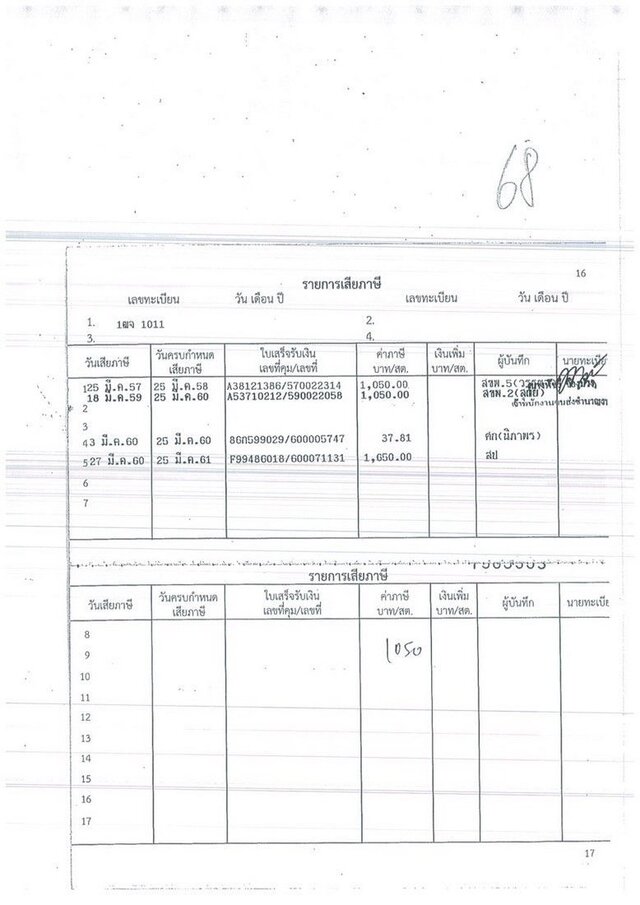 68
16
รายการเสียภาษี
เลขทะเบียน วัน เดือน ปี เลขทะเบียน วัน เดือน ปี
1. 1ฒจ 1011 2.
3. 4.
วันเสียภาษี วันครบกำหนดเสียภาษี ใบเสร็จรับเงิน เลขที่คุม/เลขที่ ค่าภาษี บาท/สต. เงินเพิ่ม บาท/สต. ผู้บันทึก นายทะเบีย
1 25 มี.ค.57 25 มี.ค.58 A38121386/570022314 1,050.00 สขพ.5
18 มี.ค.59 25 มี.ค.60 A53710212/590022058 1,050.00 สขพ.2
2
3
4 3 มี.ค.60 25 มี.ค.60 86ก599029/600005747 37.81 ศก(นิภาพร)
5 27 มี.ค.60 25 มี.ค.61 F99486018/600071131 1,650.00 สป
6
7
รายการเสียภาษี
วันเสียภาษี วันครบกำหนดเสียภาษี ใบเสร็จรับเงิน เลขที่คุม/เลขที่ ค่าภาษี บาท/สต. เงินเพิ่ม บาท/สต. ผู้บันทึก นายทะเบีย
8
9 1050
10
11
12
13
14
15
16
17
17